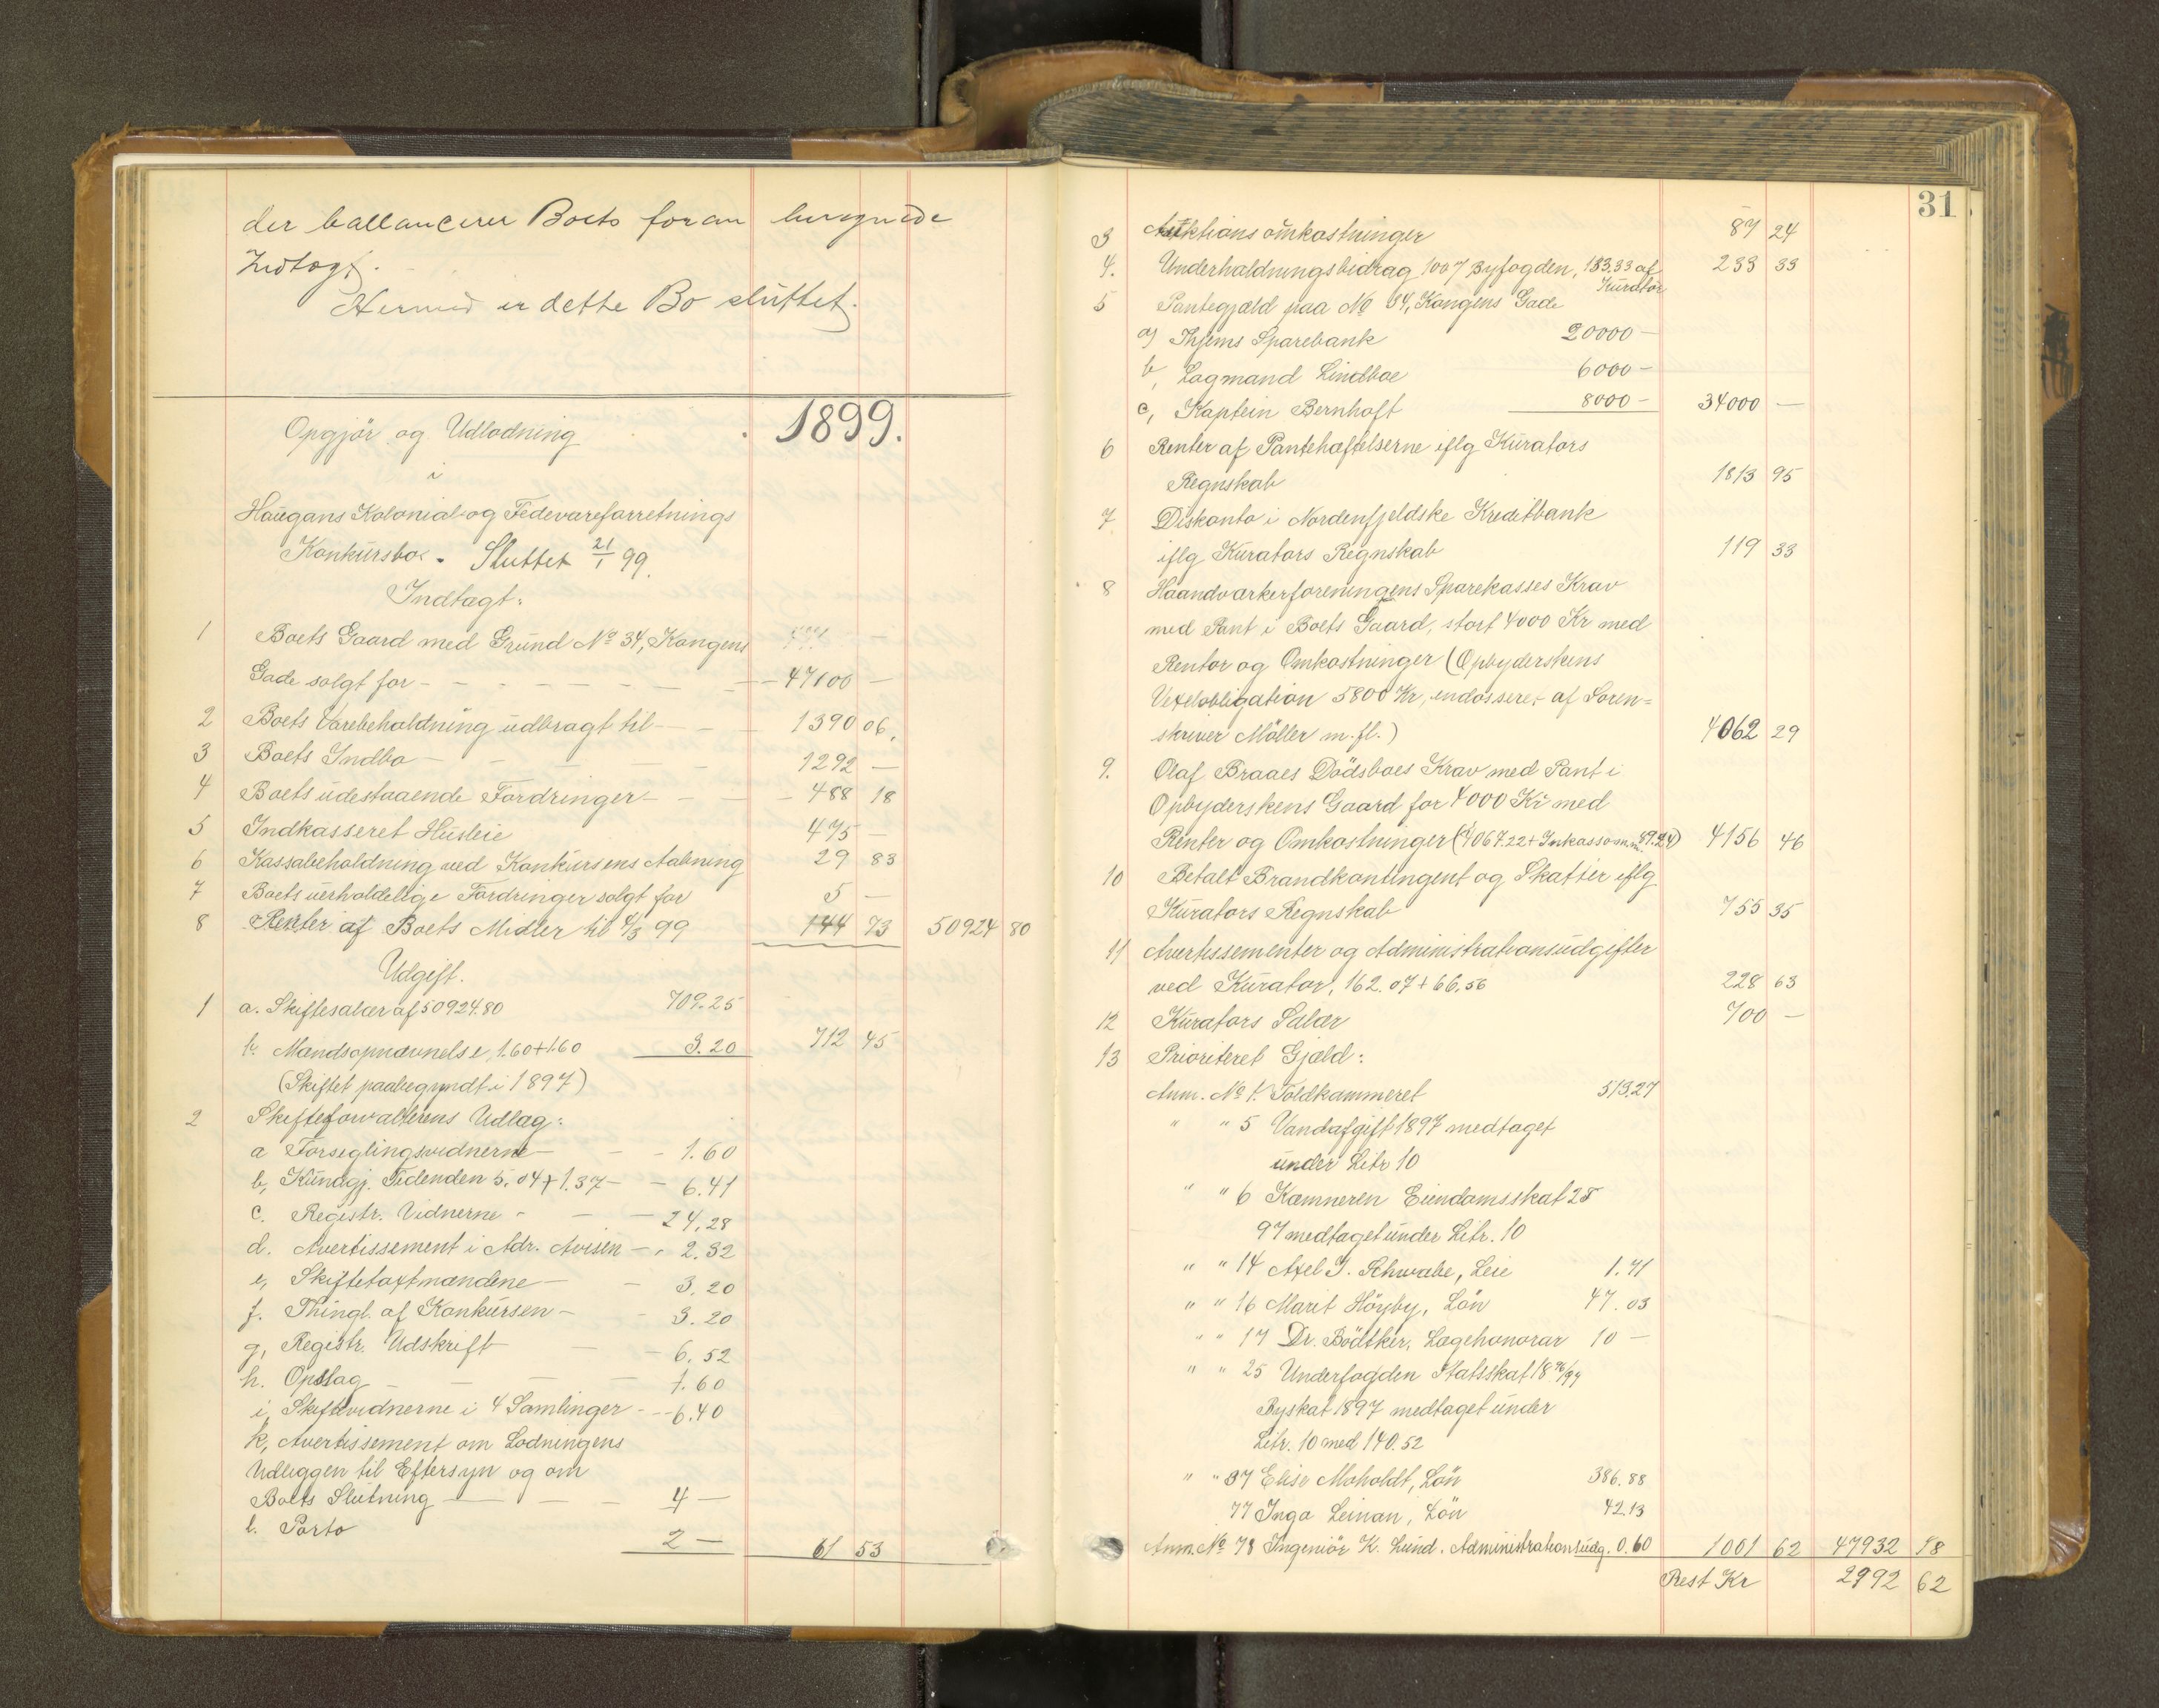 der ballancerer Boets foran beregnede
Indtægt.
Hermed er dette Bo sluttet.
Opgjör og Udlodning 1899.
i
Haugans Kolonial- og Fedevareforretnings
Konkursbo. Sluttet 21/1 99.
Indtægt:
1 Boets Gaard med Grund No 34, Kongens
Gade solgt for - 47100 -
2 Boets Varebeholdning udbragt til - 1390 06.
3 Boets Indbo - 1292 -
4 Boets udestaaende Fordringer - 488 18
5 Indkasseret Husleie 475 -
6 Kassabeholdning ved Konkursens Aabning 29 83
7 Boets uerholdelige Fordringer solgt for 5 -
8 Renter af Boets Midler til 99 144 73 50924 80
Udgift.
1 a. Skiftesalær af 50924.80 709.25
b. Mandsopnævnelse, 1.60+1.60 3.20 712 45
(Skiftet paabegyndt i 1897)
2 Skifteforvalterens Udlæg:
a Forseglingsvidnerne - 1.60
b, Kundgj. Tidenden 5.04+1.37 - 6.41
c. Registr. Vidnerne - 24.28
d. Avertissement i Adr. Avisen - 2.32
e, Skiftetaxtmændene - 3.20
f. Thingl. af Konkursen - 3.20
g, Registr. Udskrift - 6.52
h. Opslag - 1.60
i, Skiftevidnerne i 4 Samlinger - 6.40
k, Avertissement om Lodningens
Udlæggen til Eftersyn og om
Boets Slutning - 4 -
l. Porto 2 - 61 53
31
3 Auktionsomkostninger 87 24
4. Underholdningsbidrag 100 Byfogden, 133.33 af
Kurator 233 33
5 Pantegjæld paa No 34, Kongens Gade
a) Thjems Sparebank 20000 -
b, Lagmand Lindboe 6000 -
c, Kaptein Bernhoft 8000 - 34000 -
6 Renter af Pantehæftelserne iflg Kurators
Regnskab 1813 95
7 Diskonto i Nordenfjeldske Kreditbank
iflg Kurators Regnskab 119 33
8 Haandværkerforeningens Sparekasses Krav
med Pant i Boets Gaard, stort 4000 Kr med
Renter og Omkostninger (Opbyderskens
Vexelobligation 5800 Kr, endosseret af Soren=
skriver Möller m. fl.) 4062 29
9. Olaf Braaes Dödsboes Krav med Pant i
Opbyderskens Gaard for 4000 Kr med
Renter og Omkostninger (4067.22 + Inkasso m.m. 89.24) 4156 46
10 Betalt Brandkontingent og Skatter iflg
Kurators Regnskab 755 35
11 Avertissementer og Administrationsudgifter
ved Kurator, 162.07 + 66.56 228 63
12 Kurators Salær 700 -
13 Prioriteret Gjæld:
Anm. No 1. Toldkammeret 513.27
" " 5 Vandafgift 1897 medtaget
under Litr 10
" " 6 Kæmneren Eiendomsskat 2T
97 medtaget under Litr. 10
" " 14 Axel J. Schwabe, Leie 1.71
" " 16 Marit Höyby, Lön 47.03
" " 17 Dr. Bödtker, Lægehonorar 10 -
" " 25 Underfogden Statsskat 1896/97
Byskat 1897 medtaget under
Litr. 10 med 140.52
" " 37 Elise Moholdt, Lön 386.88
77 Inga Leinan, Lön 42.13
Anm. No 78 Ingeniör K. Lund. Administrationsudg. 0.60 1001 62 47932 18
Rest Kr 2992 62